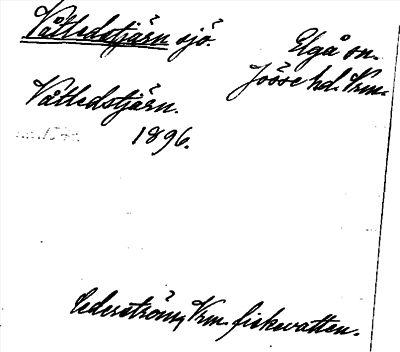 Våtledstjärn sjö.
Elgå sn.
Jösse hd. Vrm.
Våtledstjärn.
1896.
Cederström, Vrm. fiskevatten.